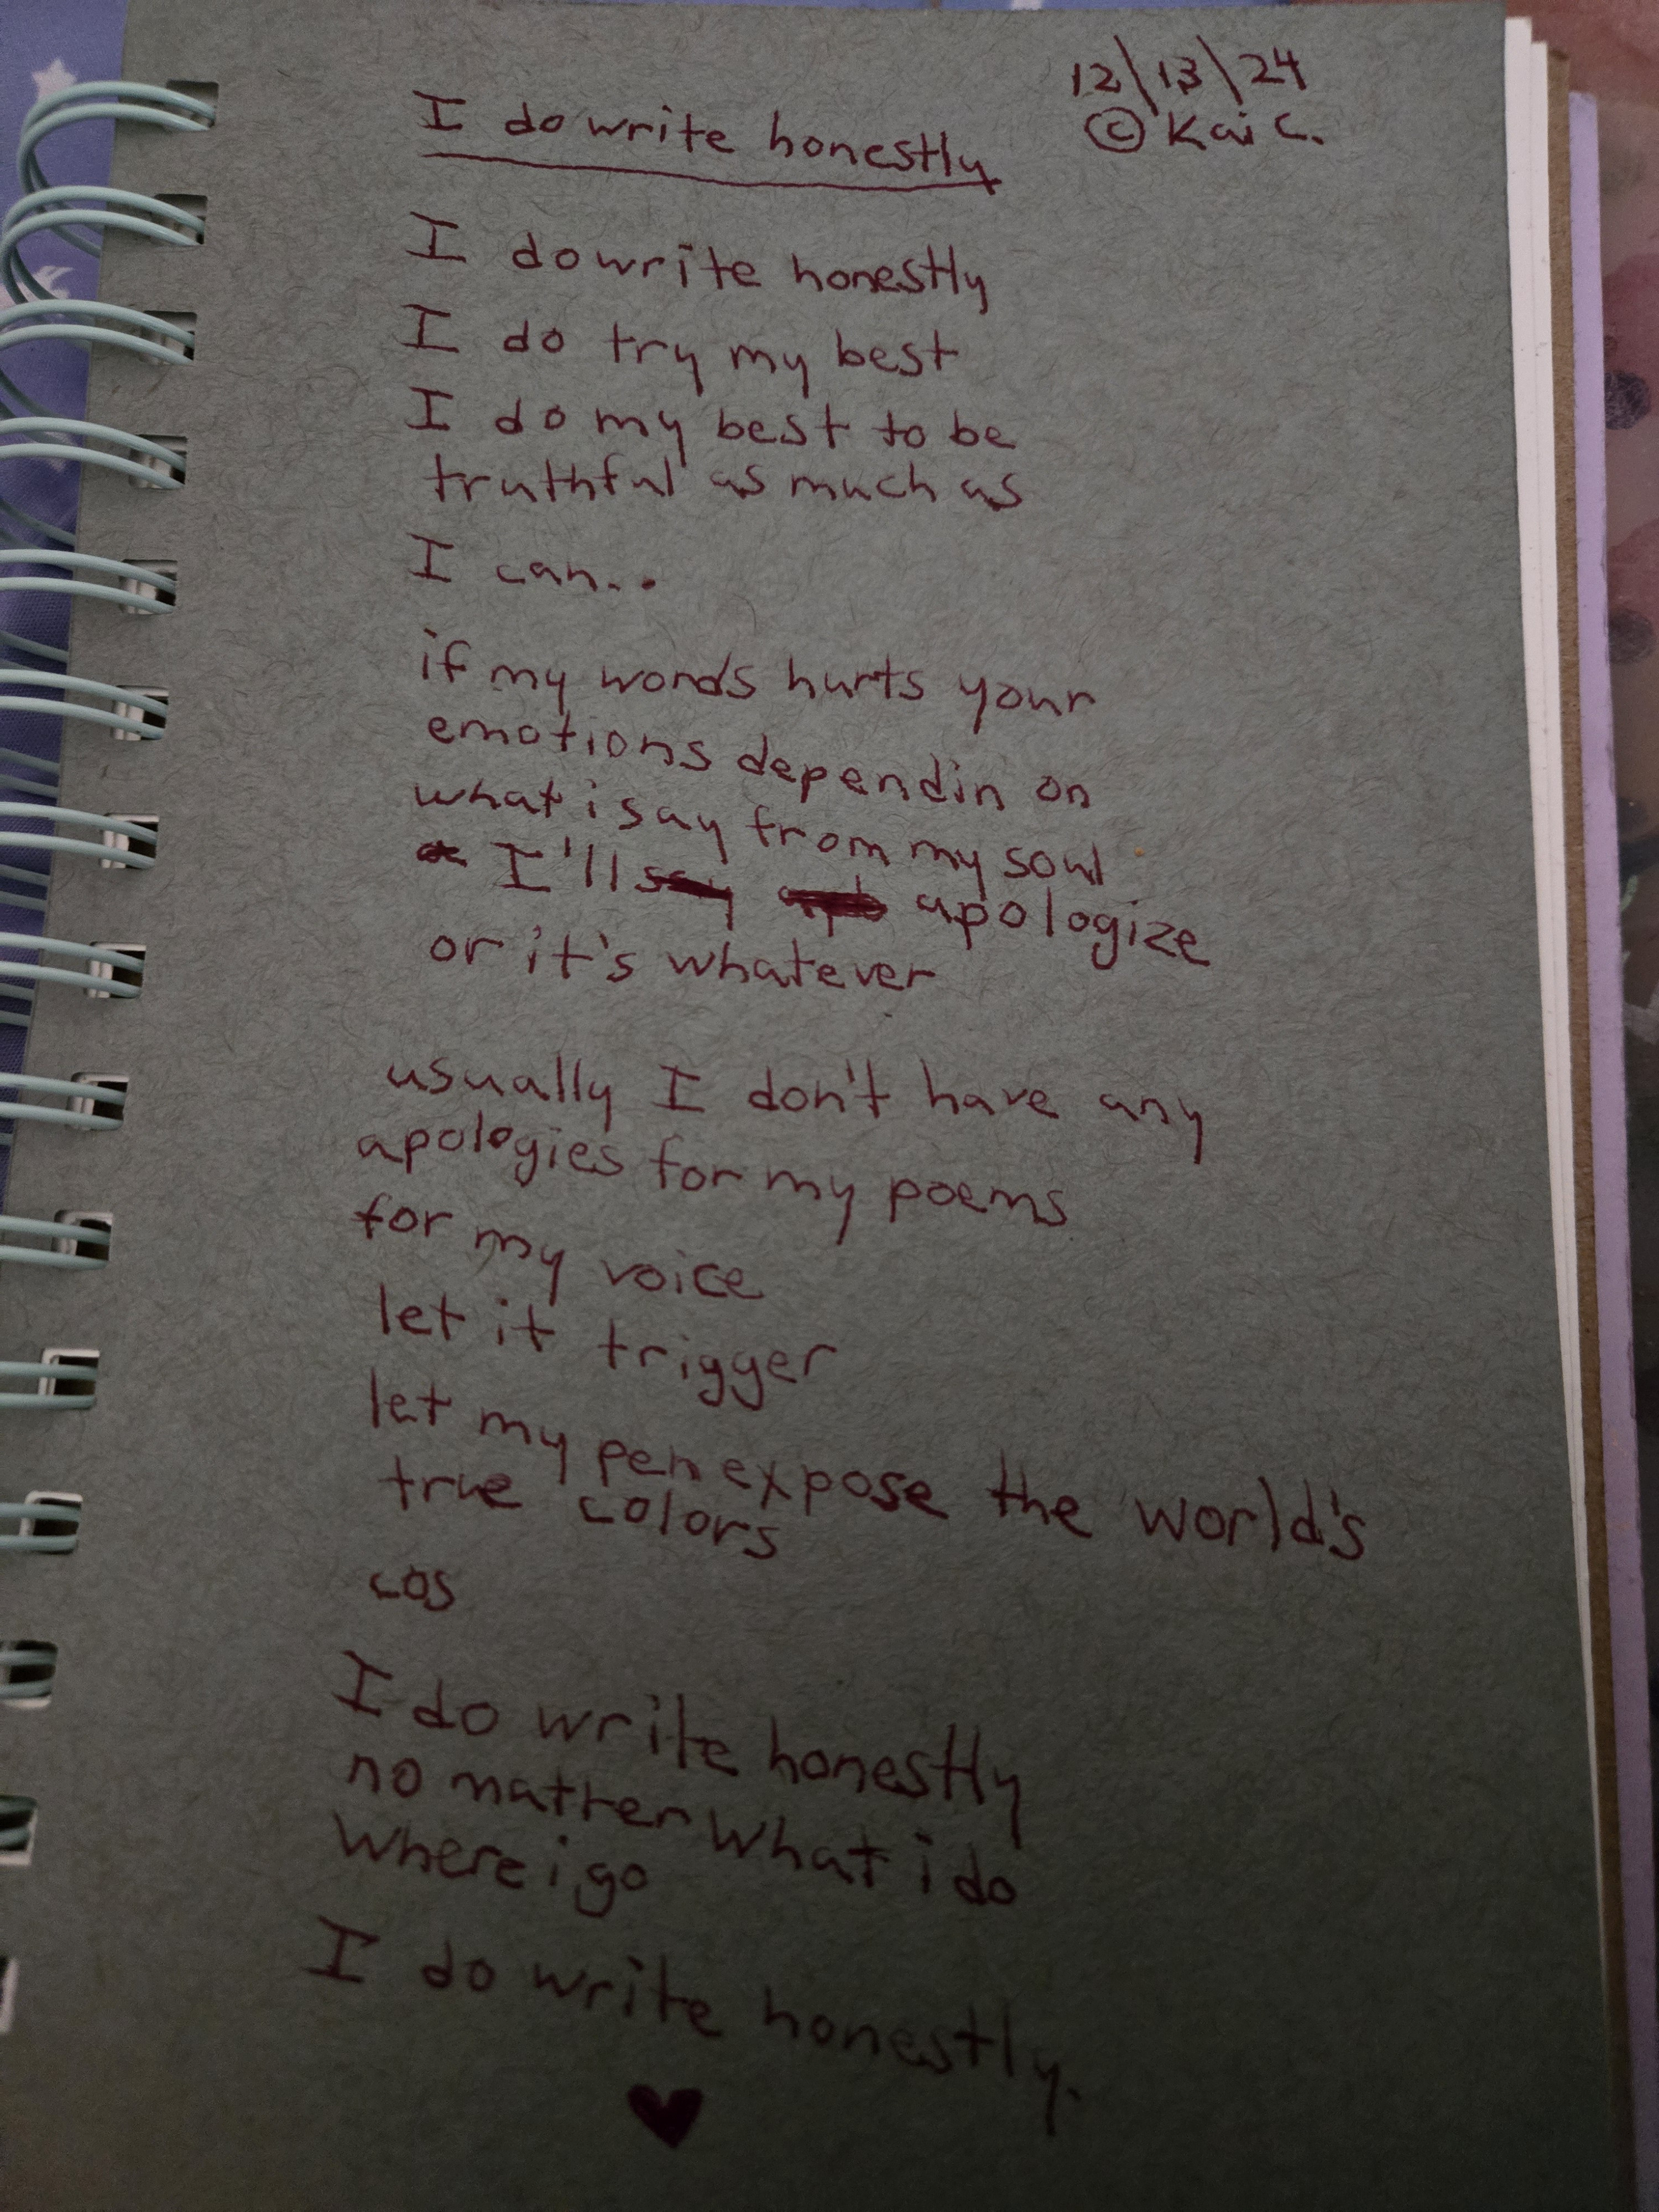 12\13\24
© Kai C.
I do write honestly
I do write honestly
I do try my best
I do my best to be
truthful as much as
I can..
if my words hurts your
emotions dependin on
what i say from my soul
I'll say apologize
or it's whatever
usually I don't have any
apologies for my poems
for my voice
let it trigger
let my pen expose the world's
true colors
cos
I do write honestly
no matter what i do
where i go
I do write honestly.